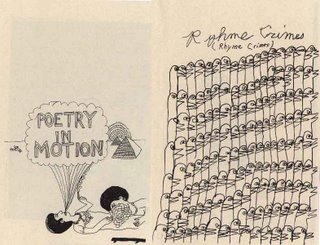 POETRY
IN
MOTION
Rhyme Crimes
(Rhyme Crimes)